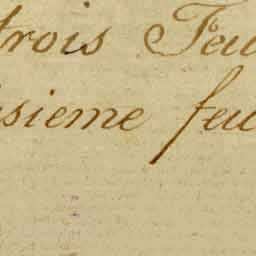 trois Feu
sieme feu